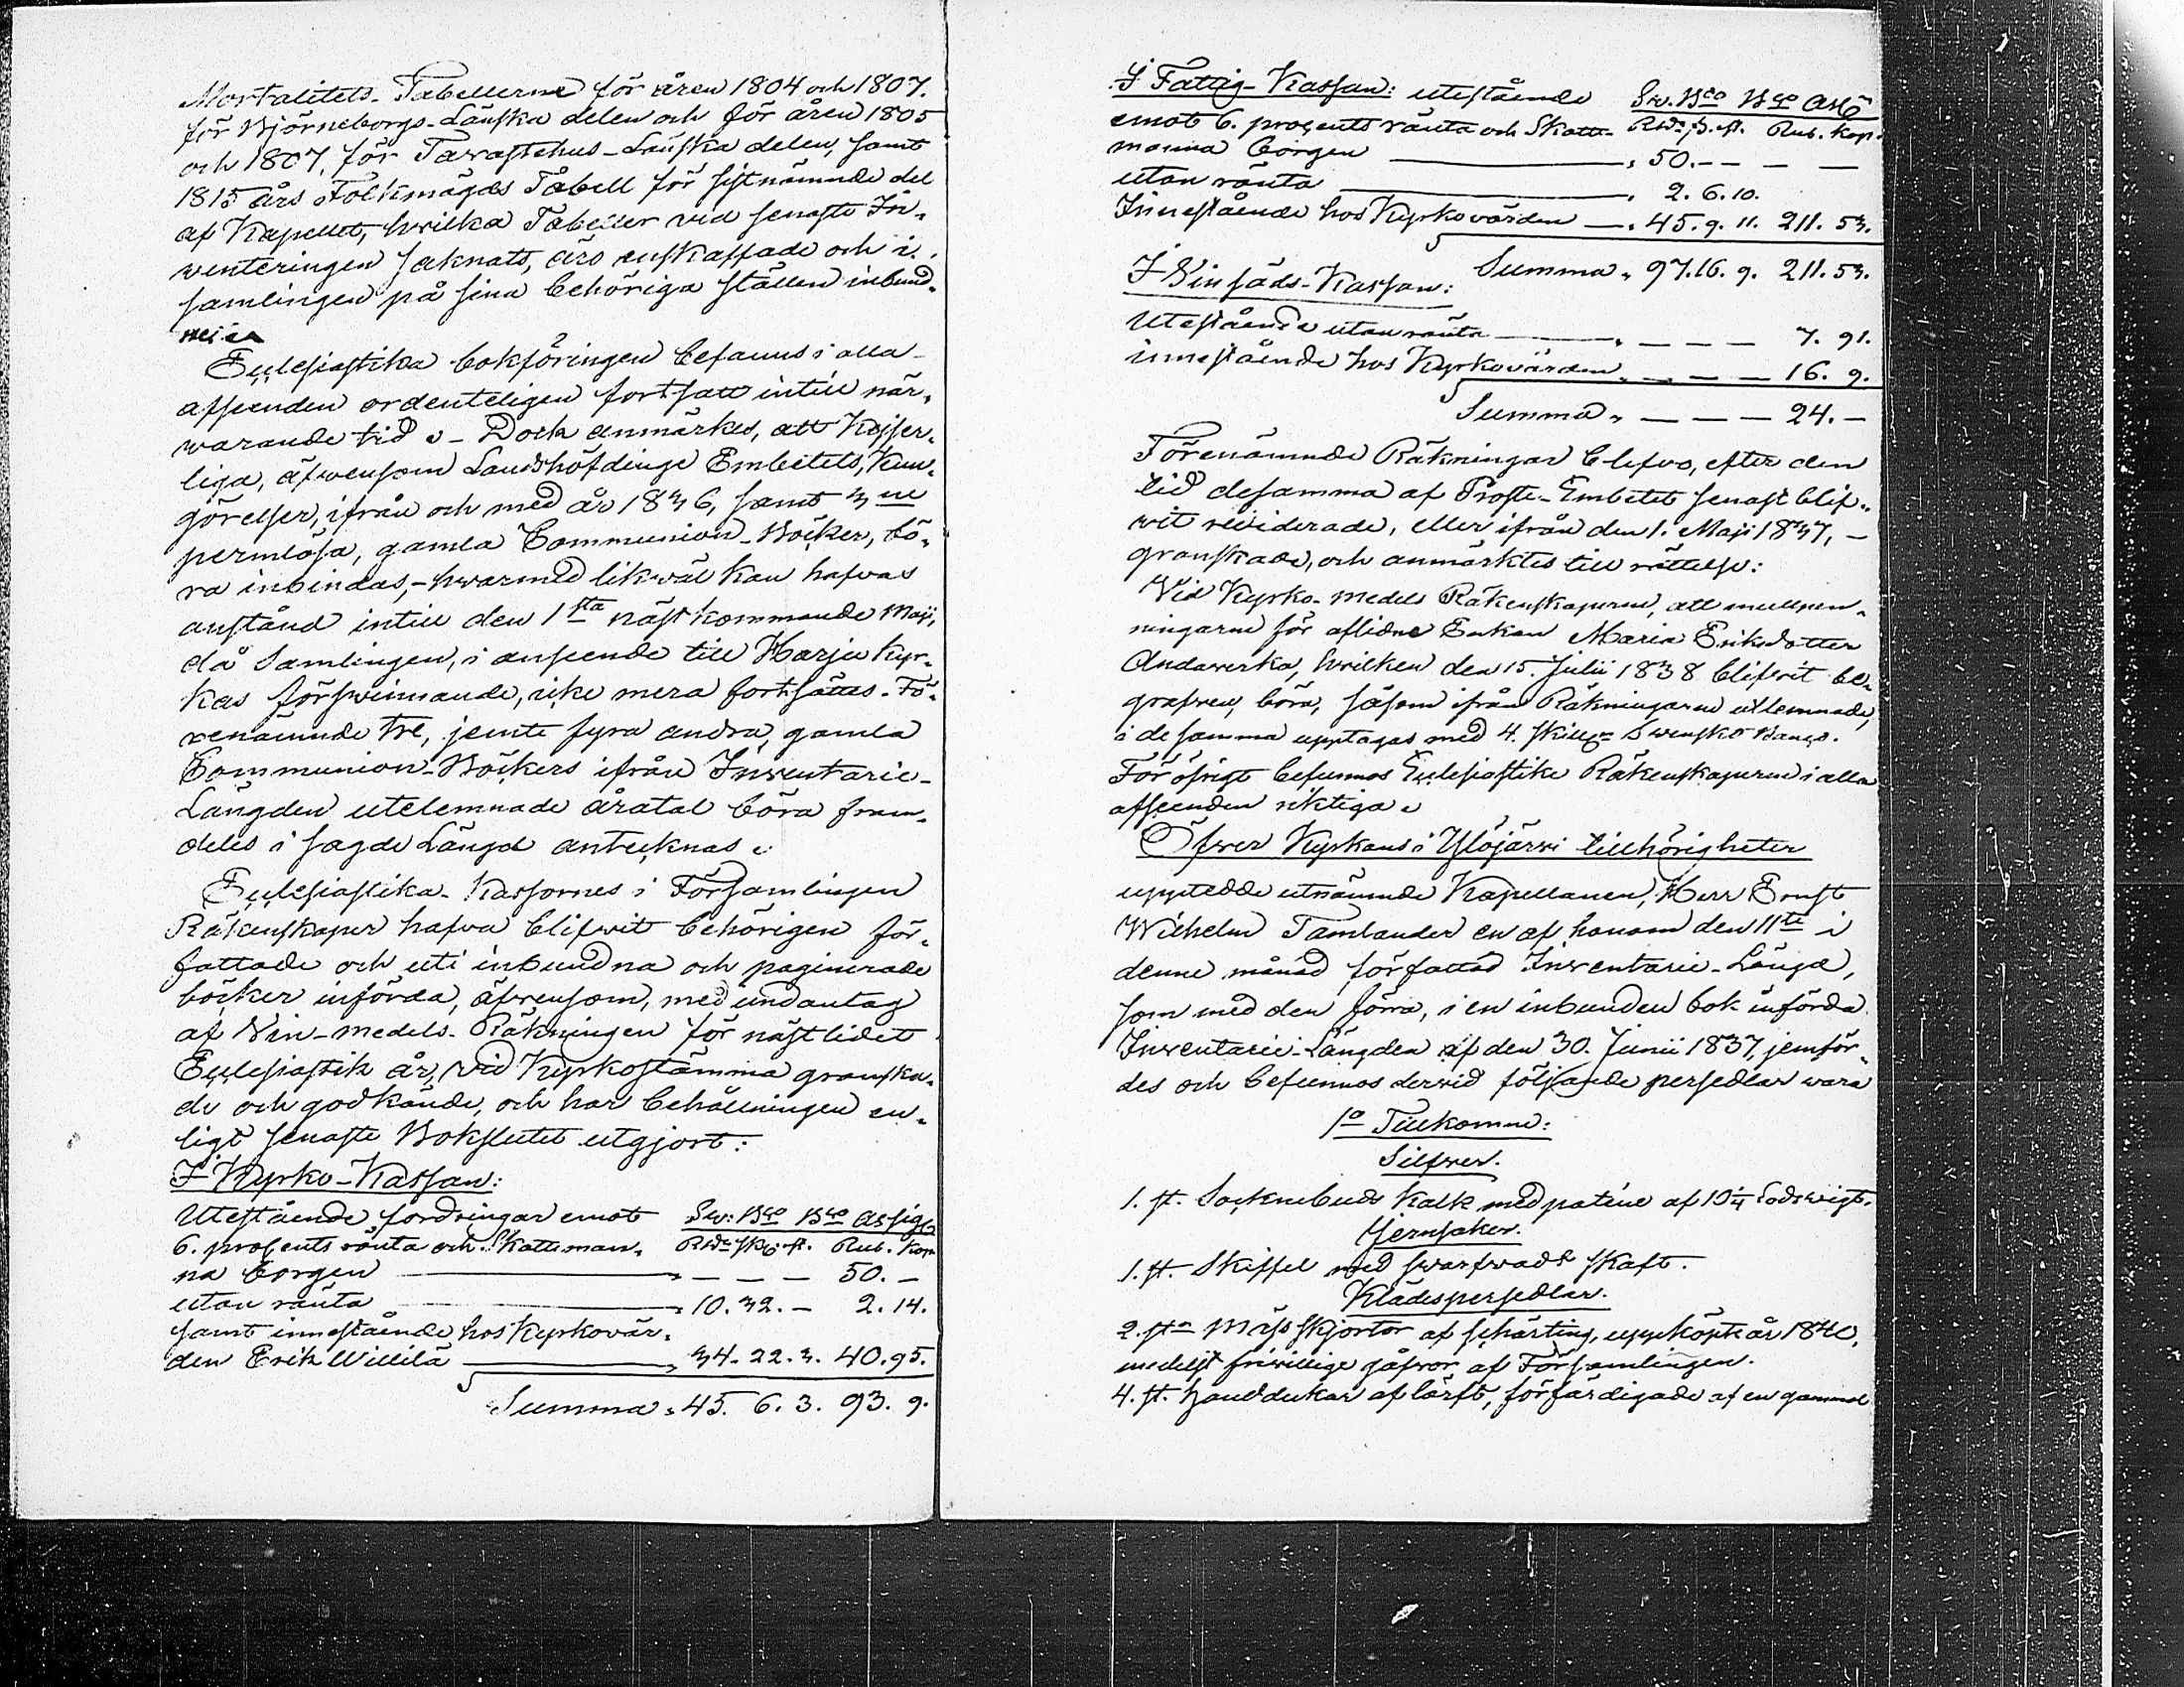 Mortalitets-Tabellerne för åren 1804 och 1807.
för Björneborgs-Länska delen och för åren 1805
och 1807, för Tavastehus-Länska delen, samt
1815 års Folkmägds Tabell för sistnämnde del
af Kapellet, hwilka Tabeller vid senaste In-
venteringen saknats, äro anskaffade och i
samlingen på sina behöriga ställen inbund-
Ecclesiastika bokföringen befanns i alla
afseenden ordenteligen fortsatt intill när-
warande tid. Dock anmärkes, att Kejser-
liga, äfwensom Landshöfdinge Embetets, Kun-
görelser, ifrån och med år 1836, samt 3ne
permlösa, gamla Communion-Böcker, bö-
ra inbindas, - hwarmed likwäl kan hafvas
anstånd intill den 1sta nästkommande Maji,
då Samlingen, i anseende till Harju Kyr-
kas förswinnande, icke mera fortsättes. Fö-
renämnde tre, jemte fyra andra, gamla
Communion-Böckers ifrån Inventarie-
Längden utelemnade åratal böra fram-
deles i sagde Längd anteknas.
Ecclesiastika-Kassornes i Församlingen
Räkenskaper hafva blifwit behörigen för-
fattade och uti inbundna och paginerade
böcker införda, äfwensom, med undantag
af Vin-medels-Räkningen för nästlidet
Ecclesiastik år, vid Kyrkostämma granska-
de och godkände, och har behållningen en-
ligt senaste Bokslutet utgjort:
I Kyrko-Kassan:
Utestående fordringar emot Sw: Bco Bco Assig
6. procents ränta och Skatteman- Rdr sk. st. Rub. kop
na borgen — — — 50. —
utan ränta 10. 32. — 2. 14.
samt innestående hos Kyrkovär-
den Erik Willilä 34. 22. 3. 40. 95.
Summa 45. 6. 3. 93. 9.
I Fattig-Kassan: utestående Sw. Bco Bco Ass
emot 6. procents ränta och Skatte- Rdr s. st. Rub. kop.
manna borgen 50. — — — —
utan ränta 2. 6. 10.
Innestående hos Kyrkovärden 45. 9. 11. 211. 53.
Summa 97. 16. 9. 211. 53.
I Vinsäds-Kassan:
Utestående utan ränta — — — 7. 91.
innestående hos Kyrkovärden — — — 16. 9.
Summa — — — 24. —
Förenämnde Räkningar blefvo, efter den
tid desamma af Prosts-Embetet senast blif-
wit reviderade, eller ifrån den 1. Maji 1837, -
granskade, och anmärktes till rättelse:
Vid Kyrko-medels Räkenskaperne, att mullpen-
ningarne för aflidne Enkan Maria Eriksdotter
Andawerka, hwilken den 15. Julii 1838 blifvit be-
grafven, böra, såsom ifrån Räkningarne utlemnade,
i desamma upptagas med 4. skillgr Swenskt Banco.
För öfrigt befunnos Ecclesiastike Räkenskaperne i alla
afseenden riktiga.
Öfwer Kyrkans i Ylöjärvi tillhörigheter
upptedde utnämnde Kapellanen, Herr Ernst
Wilhelm Tamlander en af honom den 11te i
denne månad författad Inventarie-Längd,
som med den förra, i en inbunden bok införda
Inventarie-Längden af den 30. Junii 1837, jemför-
des och befunnos dervid följande persedlar vara
1o Tillkomne:
Silfwer.
1. st. Socknebuds Kalk med paténe af 10¼ Lods wigt.
Jernsaker.
1. st. Skiffel med swarfwadt skaft.
Klädespersedlar.
2. st. Mässskjortor af schärting, uppköpte år 1840,
medelst friwillige gåfvor af Församlingen.
4. st. handdukar af lärft, förfärdigade af en gammal